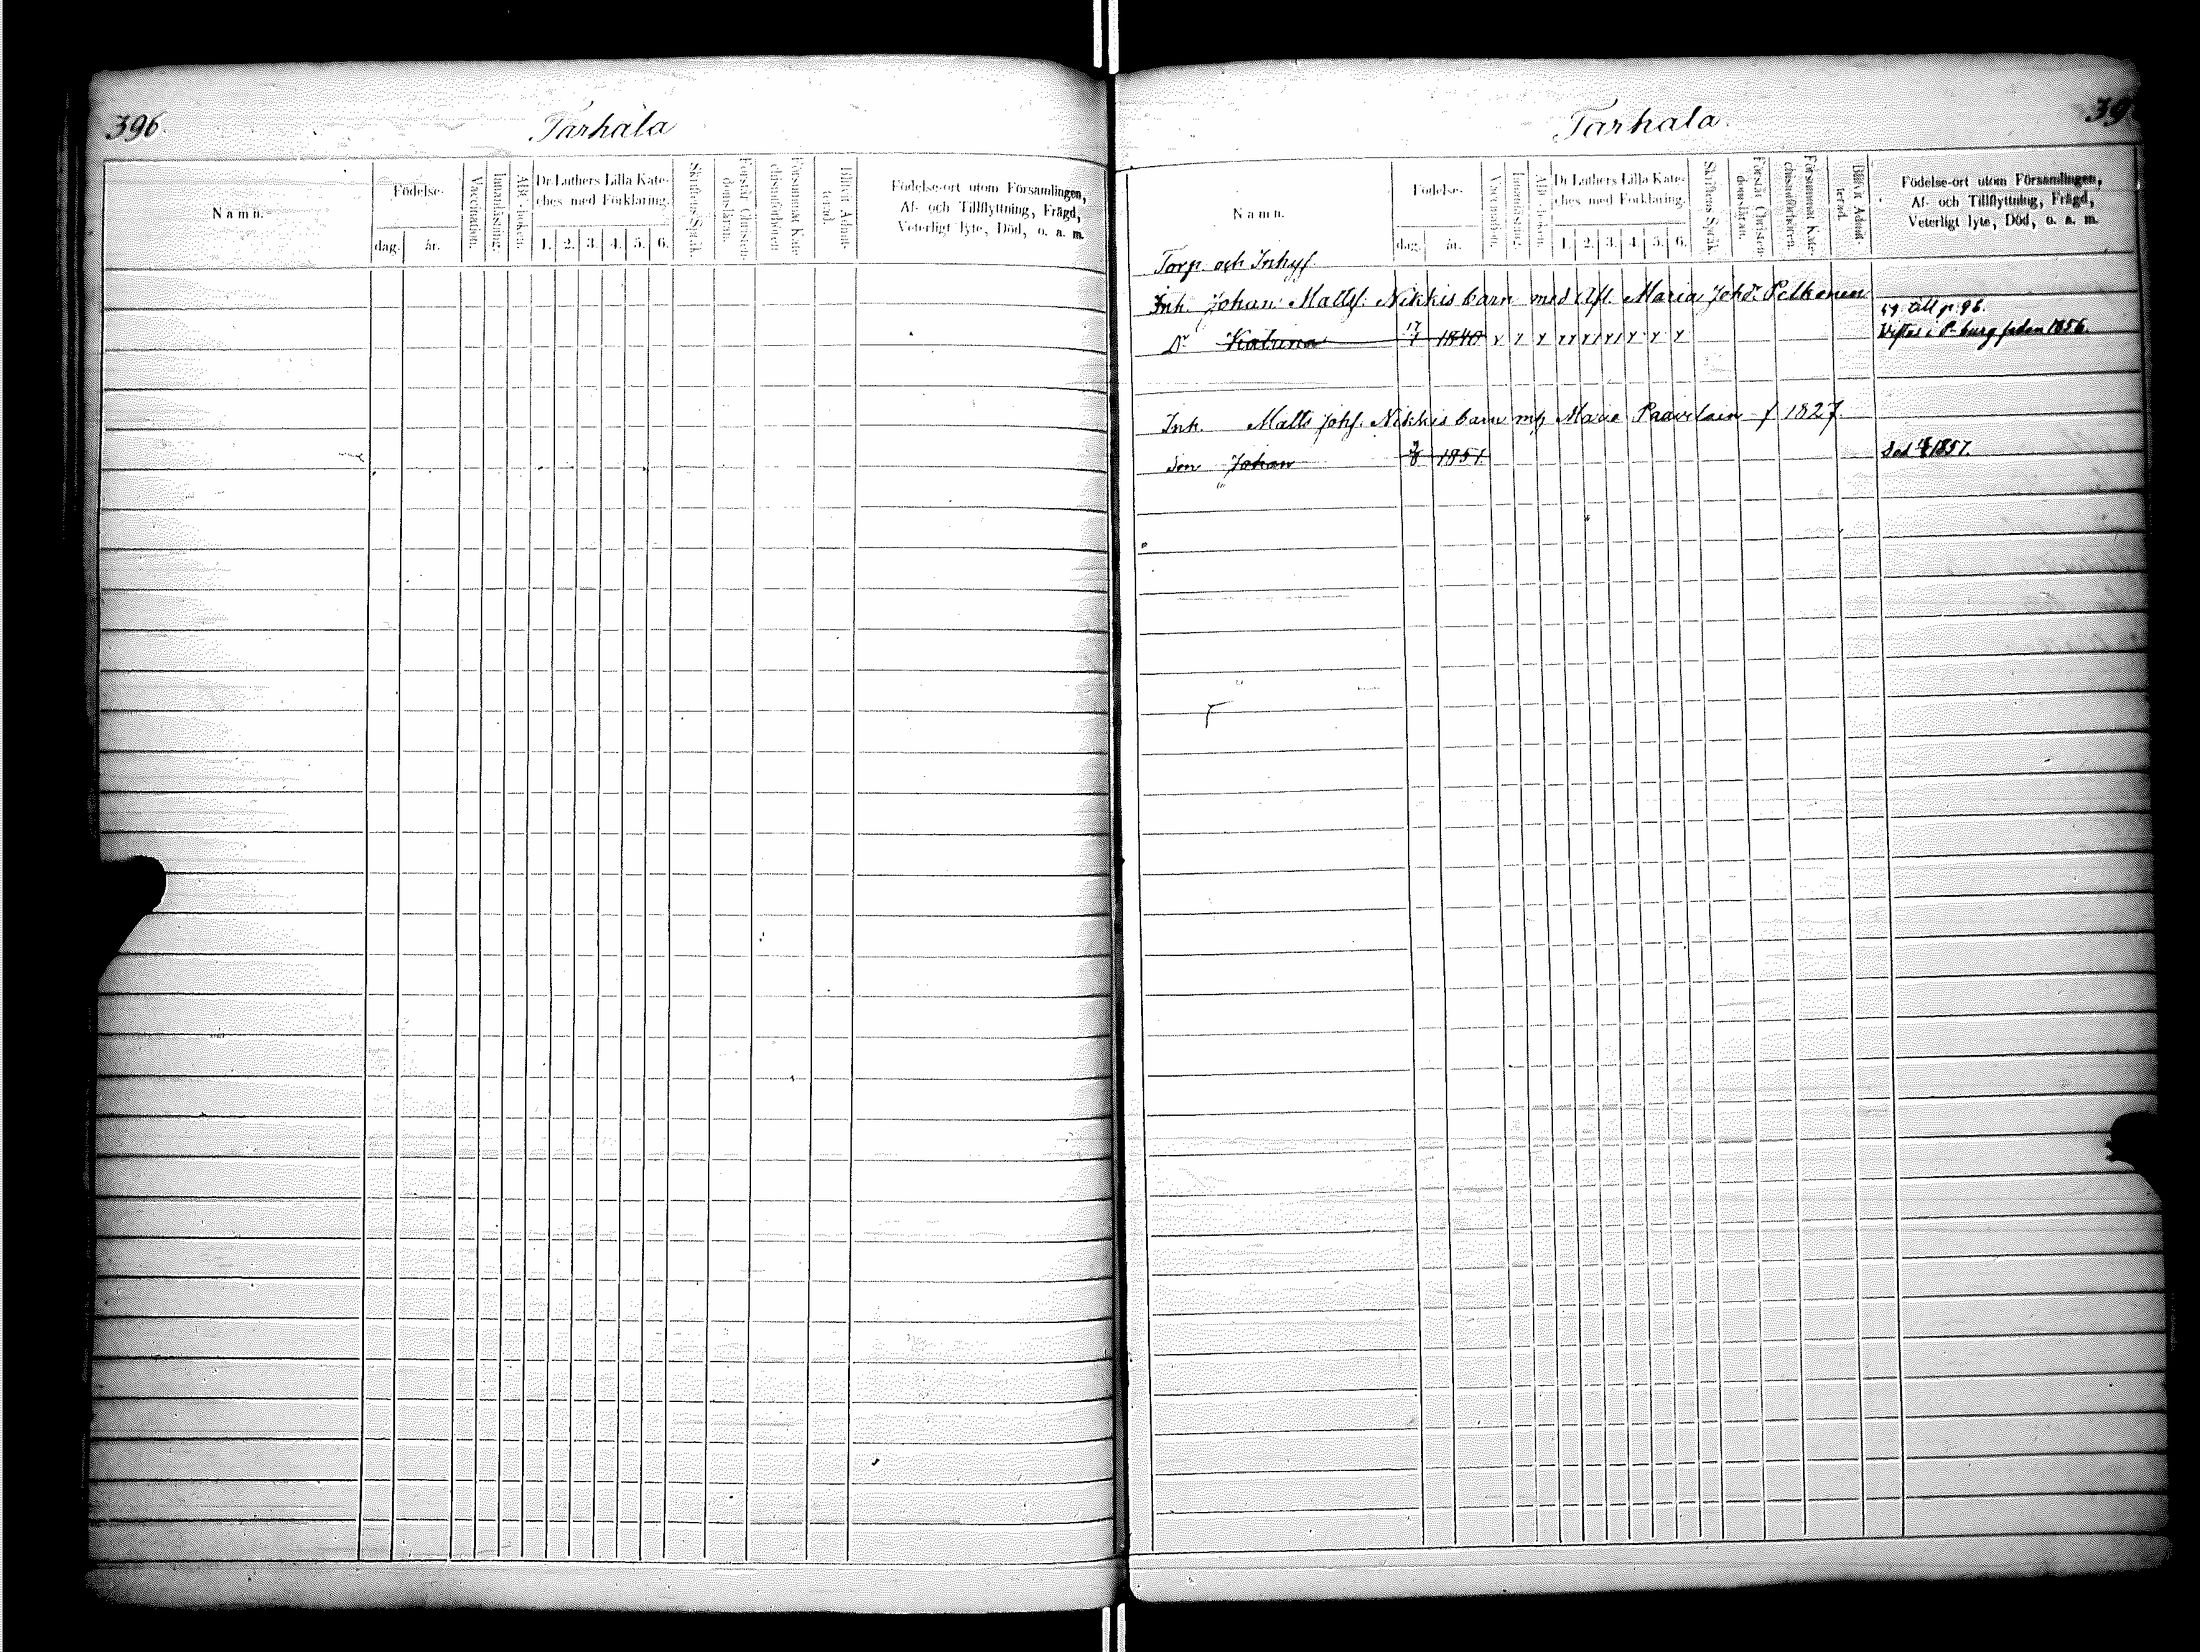 396.
Tarhala
Namn.
Födelse-
dag.
år.
Vaccination.
Innanläsning.
ABC-boken.
Dr Luthers Lilla Kate-
ches med Förklaring.
1. 2. 3. 4. 5. 6.
Skriftens Språk.
Förstår Christen-
domsläran.
Försummat Kate-
chismiförhören.
Blifvit Admit-
terad.
Födelse-ort utom Församlingen,
Af- och Tillflyttning, Frägd,
Veterligt lyte, Död, o. a. m.
Tarhala.
39
Namn.
Födelse-
dag.
år.
Vaccination.
Innanläsning.
ABC-boken.
Dr Luthers Lilla Kate-
ches med Förklaring.
1. 2. 3. 4. 5. 6.
Skriftens Språk.
Förstår Christen-
domsläran.
Försummat Kate-
chismiförhören.
Blifvit Admit-
terad.
Födelse-ort utom Församlingen,
Af- och Tillflyttning, Frägd,
Veterligt lyte, Död, o. a. m.
Torp och Inhys
Inh. Johan Matts. Nikkis barn med Afl. Maria Johd. Pelkonen
till p. 96.
Dr Katarina 1840 Vistas i P-burg sedan 1856.
Inh. Matts Johs. Nikkis barn m. Maria Paavilain f 1827.
Son Johan 1857. Död 1857.